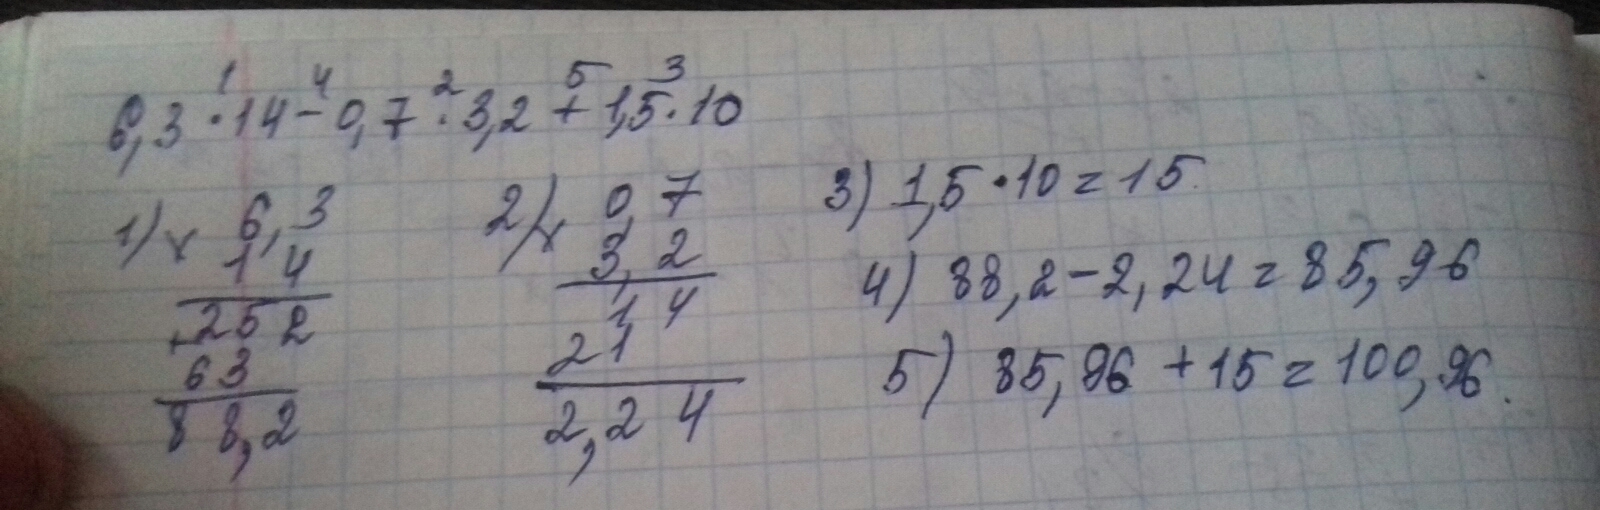 1 4 2 5 3
6,3 · 14 - 0,7 · 3,2 + 1,5 · 10
1) x 6,3
1 4
+252
63
88,2
2) x 0,7
3,2
14
21
2,24
3) 1,5 · 10 = 15.
4) 88,2 - 2,24 = 85,96
5) 85,96 + 15 = 100,96.